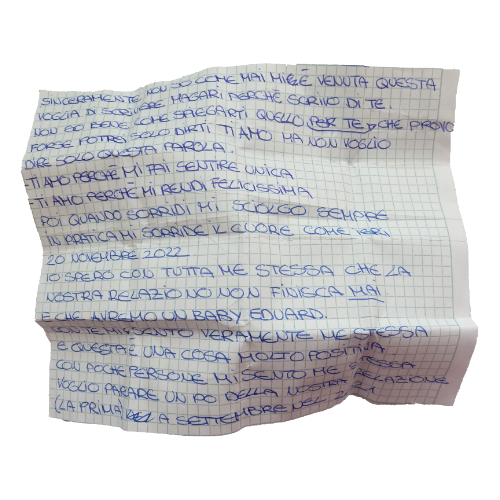 SINCERAMENTE NON SO COME MAI MI È VENUTA QUESTA
VOGLIA DI SCRIVERE MAGARI PERCHÈ SCRIVO DI TE.
NON SO BENE COME SPIEGARTI QUELLO PER TE CHE PROVO
FORSE POTREI SOLO DIRTI TI AMO MA NON VOGLIO
DIRE SOLO QUESTA PAROLA
-TI AMO PERCHÈ MI FAI SENTIRE UNICA
-TI AMO PERCHÈ MI RENDI FELICISSIMA
POI QUANDO SORRIDI MI SCIOLGO SEMPRE
IN PRATICA MI SORRIDE IL CUORE COME IERI
20 NOVEMBRE 2022
IO SPERO CON TUTTA ME STESSA CHE LA
NOSTRA RELAZIO NO NON FINISCA MAI
E CHE AVREMO UN BABY EDUARD.
CON TE MI SENTO VERAMENTE ME STESSA
E QUESTA È UNA COSA MOLTO POSITIVA
CON POCHE PERSONE MI SENTO ME STESSA
VOGLIO PARARE UN PO DELLA NOSTRA RELAZIONE
(LA PRIMA A SETTEMBRE NEL